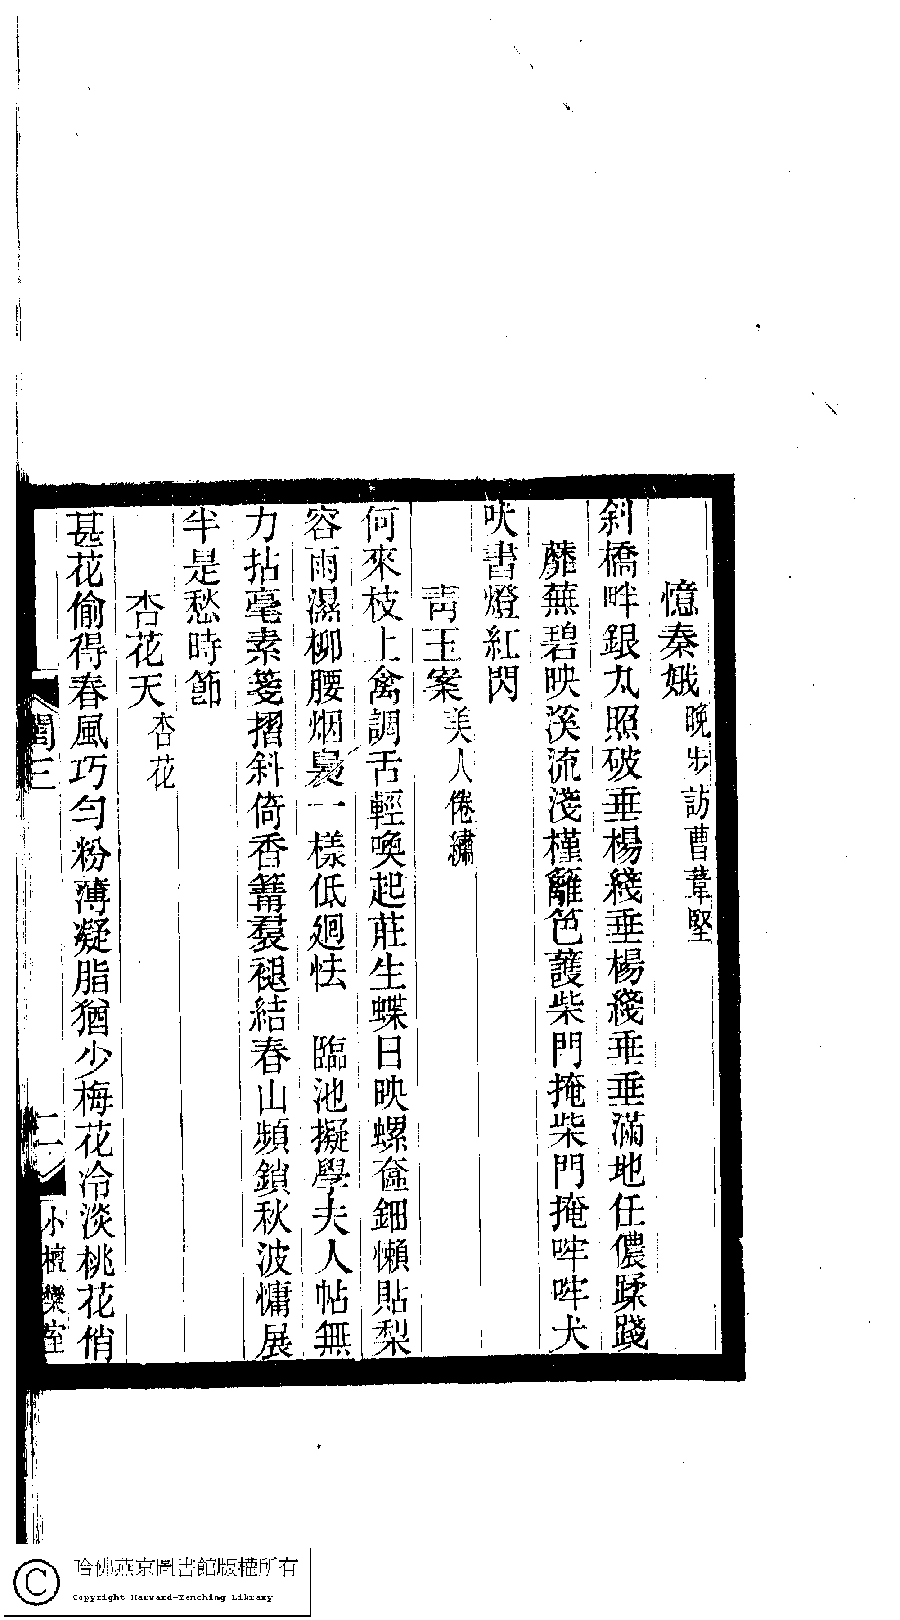 憶秦娥 晚步訪曹葦堅
斜橋畔銀丸照破垂楊綫垂楊綫垂垂滿地任儂蹂踐
蘼蕪碧映溪流淺槿籬笆護柴門掩柴門掩哰哰犬
吠書燈紅閃
靑玉案 美人倦繡
何來枝上禽調舌輕喚起莊生蝶日映螺奩鈿懶貼梨
容雨濕柳腰烟裊一樣低廻怯　臨池擬學夫人帖無
力拈毫素箋摺斜倚香篝羣褪結春山頻鎖秋波慵展
半是愁時節
杏花天 杏花
甚花偷得春風巧勻粉薄凝脂猶少梅花冷淡桃花俏
閨三
二
小檀欒室
哈佛燕京圖書館版權所有
Copyright Harvard-Yenching Library